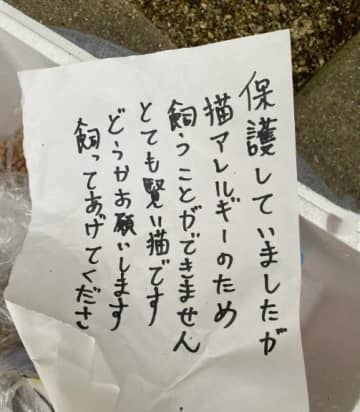 保護していましたが
猫アレルギーのため
飼うことができません
とても賢い猫です
どうかお願いします
飼ってあげてくださ